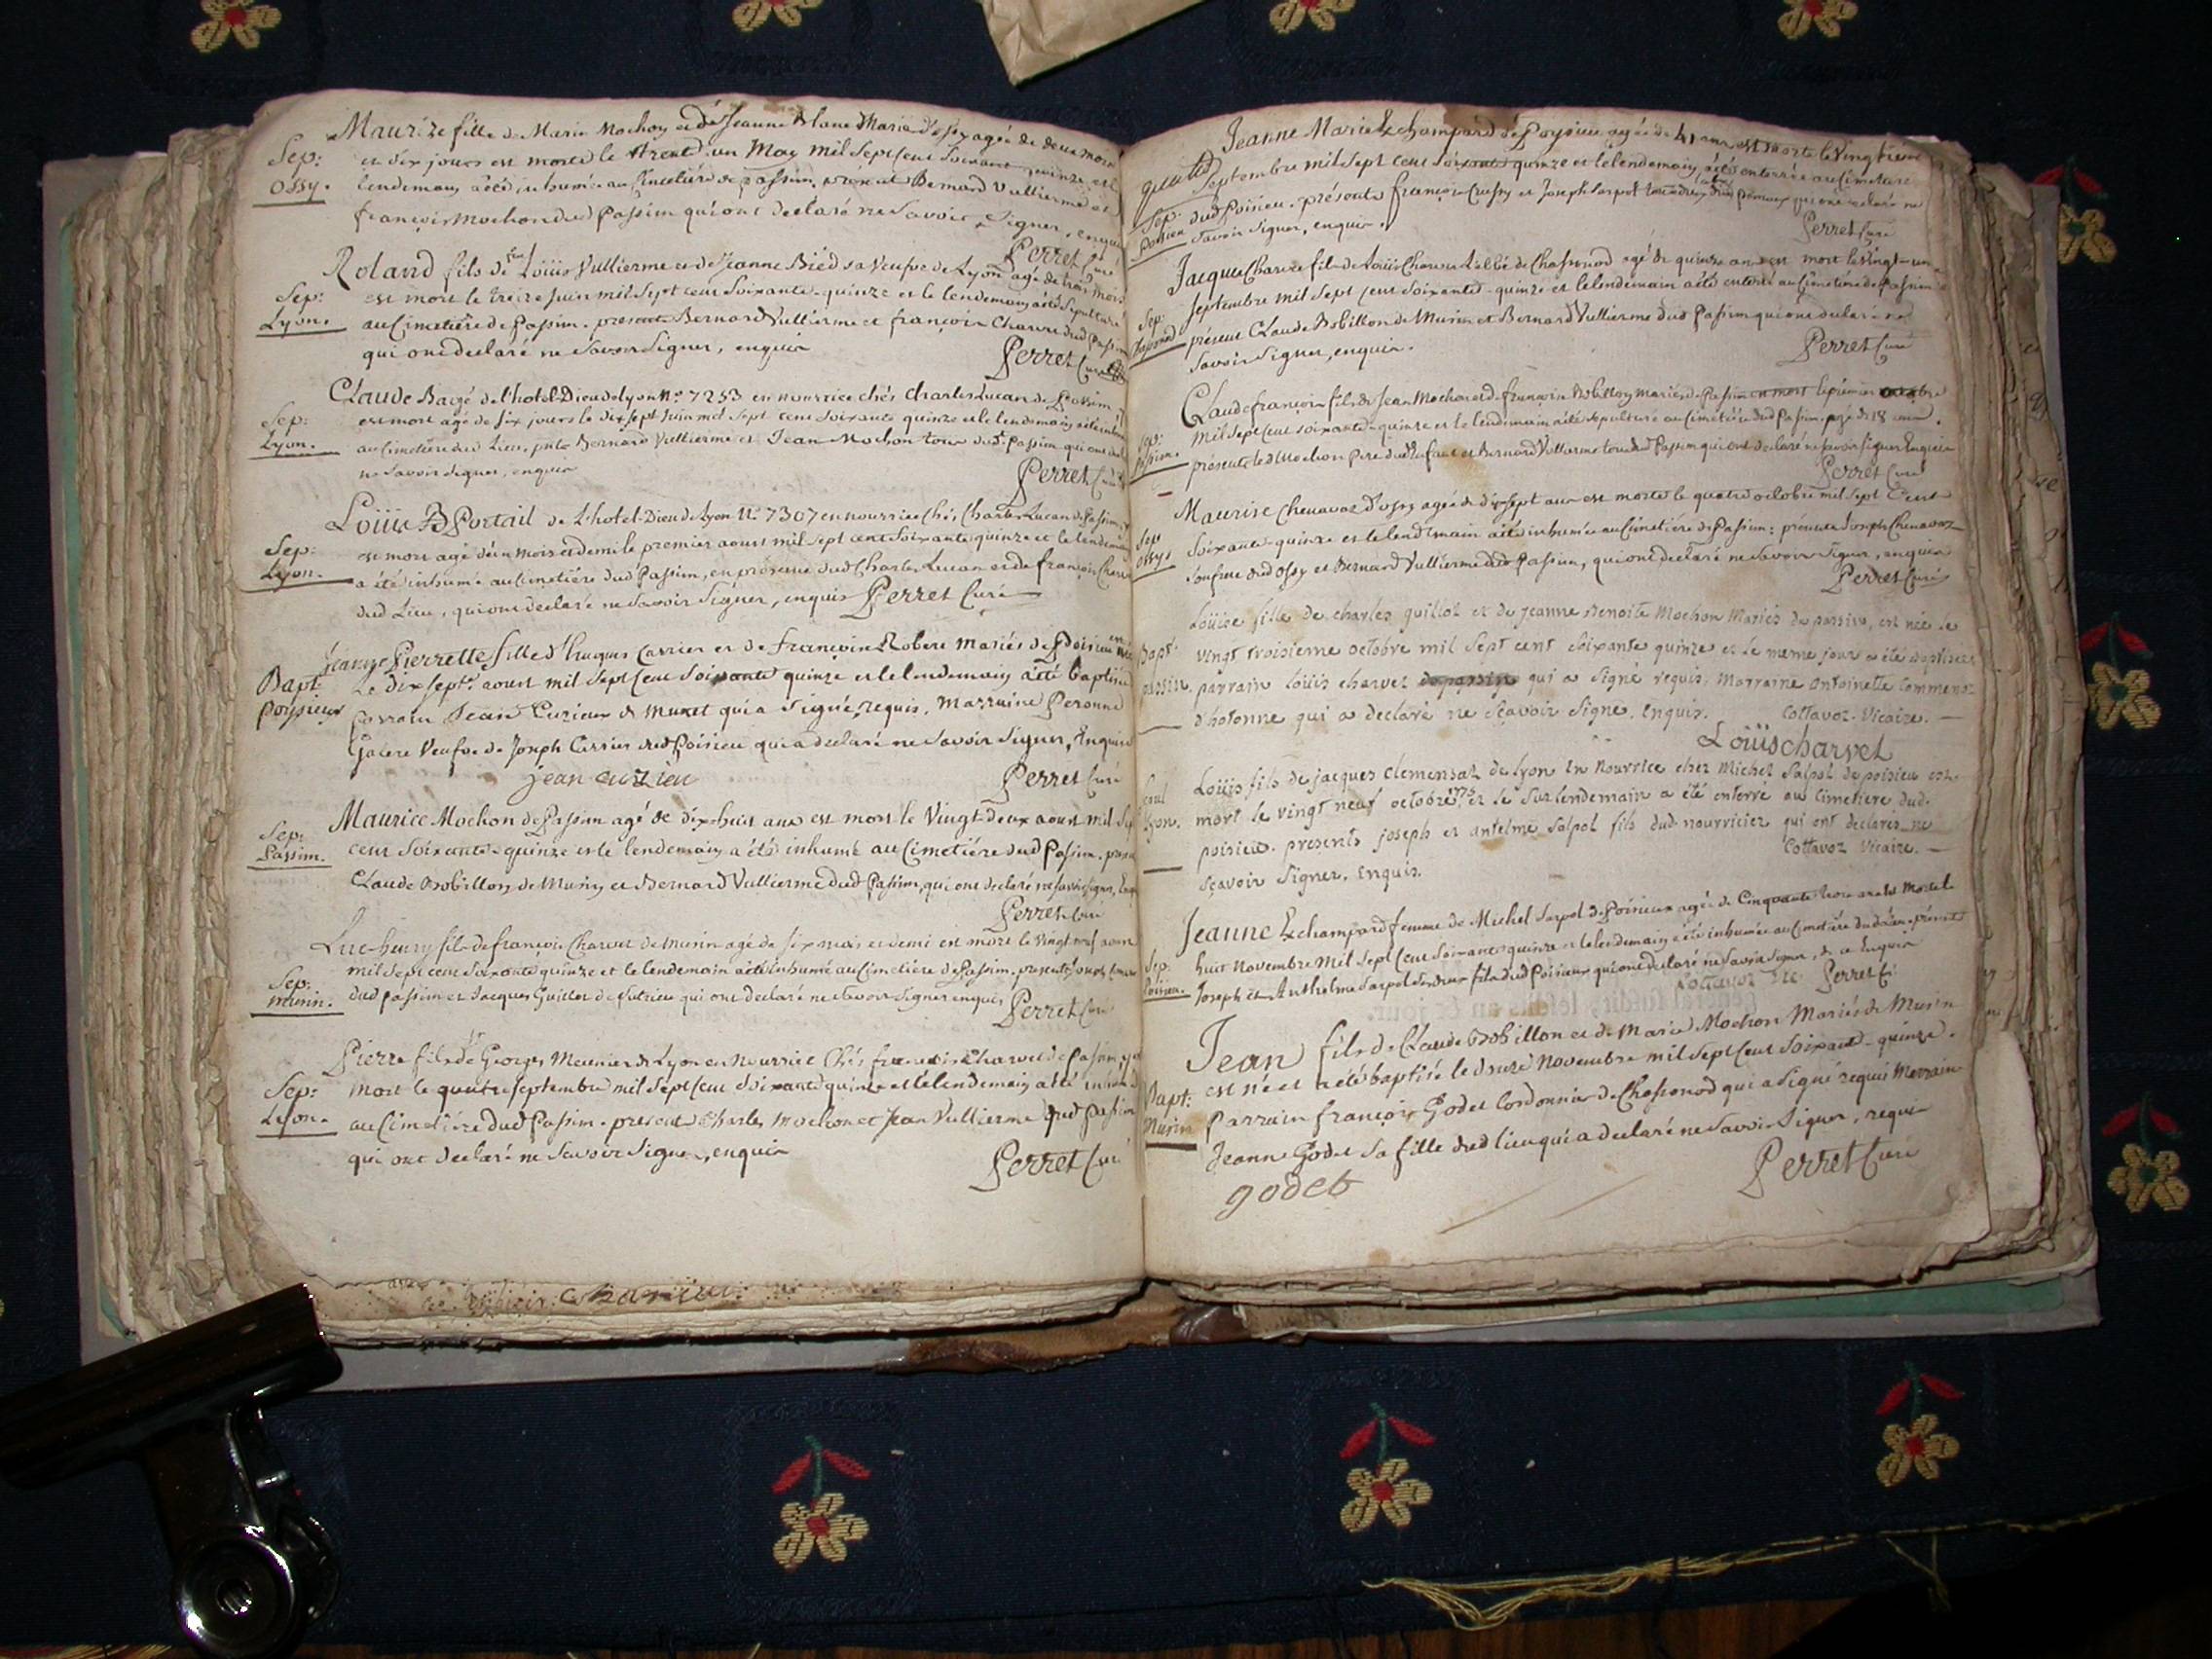 Maurize fille de Marin Mochon et de Jeanne Blanc Mariés d'ossy agée de deux mois
Sep: et dix jours est morte le trente un May mil Sept Cent Soixante quinze et le
Ossy. lendemain a été inhumée au Cimetière de passim, présent Bernard Vullierme et
françois Mochon dud Passim qui ont declaré ne Savoir Signer, enquis
Perret Curé
Roland fils de feu Loüis Vullierme et de Jeanne Bied sa Veufve de Lyon agé de trois mois
Sep: est mort le treize Juin mil Sept cent Soixante-quinze et le lendemain a été Sepulturé
Lyon. au Cimetière de Passim. presents Bernard Vullierme et françois Charvet dud Passim
qui ont declaré ne Savoir Signer, enquis
Perret Curé
Claude Bargé de l'hotel-Dieu de Lyon No. 7253 en nourrice chés Charles Lucan de Passim,
Sep: est mort agé de six jours le dix sept Juin mil Sept Cent Soixante quinze et le lendemain a été
Lyon. au Cimetière dud Lieu, pnts Bernard Vullierme et Jean Mochon tous dud. Passim qui ont
ne Savoir Signer, enquis
Perret Curé
Loüis Portail de L'hotel-Dieu de Lyon No. 7307 en nourrice chés Charles Lucan de Passim,
Sep: est mort agé d'un mois et demi le premier aoust mil Sept cent Soixante quinze et le lendemain
Lyon. a été inhumé au Cimetière dud Passim, en présence dud Charles Lucan et de françois Charvet
dud Lieu, qui ont declaré ne Savoir Signer, enquis Perret Curé
Jeanne Pierrette fille d'huques Carrier et de françoise Robert mariés de Poisieu est née
Bapt: Le dix sept. aoust mil Sept Cent Soixante quinze et le lendemain a été baptisée
Poysieux Parrain Jean Curieux de Munet qui a Signé, requis. Marraine Peronne
Galere Veufve de Joseph Carrier dud Poisieu qui a declaré ne Savoir Signer, Enquise
jean curzieu Perret Curé
Maurice Mochon de Passim agé de dix-huit ans est mort le Vingt-deux aoust mil Sept
Sep: cent Soixante-quinze et le lendemain a été inhumé au Cimetière dud Passim. présents
Passim. Claude Bobillon de Musin et Bernard Vullierme dud Passim, qui ont declaré ne Savoir Signer, Enquis
Perret Curé
Luc-henry fils de françois Charvet de Musin agé de six mois et demi est mort le vingt neuf aoust
mil Sept cent Soixante quinze et le lendemain a été inhumé au Cimetière de Passim. presents Joseph
Sep: dud passim et Jacques Guillot de Sutrieu qui ont declaré ne Savoir Signer enquis Perret Curé
musin.
Pierre fils de Sr Georges Meunier de Lyon en nourrice Chés françois Charvet de Passim, est
Sep: mort le quatre Septembre mil Sept Cent Soixante quinze et le lendemain a été inhumé
Lyon. au Cimetière dud Passim. presents Charles Mochon et Jean Vullierme dud Passim
qui ont declaré ne Savoir Signer, enquis
Perret Curé
Jeanne Marie Echampard de Poysieu agée de 41 ans est morte le vingtième
Septembre mil Sept Cent Soixante quinze et le lendemain a été enterrée au Cimetière
Sep: dud Poisieu. présents françois Cussy et Joseph Sarpol tous deux dud Poisieux qui ont declaré ne
Poisieu Savoir Signer, enquis.
Perret Curé
Jacques Charvet fils de Loüis Charvet L'abbé de Chassonod agé de quinze ans est mort le Vingt-un
Sep: Septembre mil Sept Cent Soixante-quinze et le lendemain a été enterré au Cimetière de Passim
présents Claude Bobillon de Musin et Bernard Vullierme dud Passim qui ont declaré ne
Savoir Signer, enquis.
Perret Curé
Claude françois fils de Jean Mochon et de françoise Bobillon mariés de Passim est mort le premier octobre
Sep: mil Sept Cent Soixante-quinze et le lendemain a été sepulturé au Cimetière dud Passim, agé de 18 mois.
Passim. présents led Mochon Pere dud Enfant et Bernard Vullierme tous dud Passim qui ont declaré ne Savoir Signer Enquis
Perret Curé
Maurise Chenavaz d'ossy agée de dix Sept ans est morte le quatre octobre mil Sept Cent
Sep: Soixante-quinze et le lendemain a été inhumée au Cimetière de Passim: présents Joseph Chenavaz
Ossy. Son frere dud Ossy et Bernard Vullierme dud Passim, qui ont declaré ne Savoir Signer, enquis
Perret Curé
Loüise fille de charles guillot et de jeanne Benoite Mochon Mariés de passim, est née le
Bapt: vingt troisieme octobre mil Sept cent Soixante quinze et le meme jour a été baptisée
passim. parrain Loüis charvet de passim qui a Signé requis, Marraine Antoinette Commenoz
d'hotonne qui a declaré ne Sçavoir Signe, enquis. Cottavoz. Vicaire.
Loüis charvet
Loüis fils de jacques Clemensat de Lyon en Nourrice chez Michel Salpol de poisieu est
Lyon. mort le vingt neuf octobre 1775 et le Surlendemain a été enterré au Cimetiere dud.
poisieu. presents joseph et antelme Salpol fils dud. nourricier qui ont declarés ne
Sçavoir Signer, enquis. Cottavoz Vicaire.
Jeanne Echampard femme de Michel Sarpol de Poisieux agée de Cinquante trois ans est Morte le
Sep: huit Novembre Mil Sept Cent Soixante quinze et le lendemain a été inhumée au Cimetière dud Lieu. présents
Poisieu. Joseph et Anthelme Sarpol Ses deux fils dud Poisieux qui ont declaré ne Savoir Signer, de ce Enquis
Cottavoz Vic Perret C.
Jean fils de Claude Bobillon et de Marie Mochon Mariés de Musin
Bapt: est né et a été baptisé le douze Novembre mil Sept Cent Soixante-quinze.
Musin Parrain françois Godet Cordonnier de Chassonod qui a Signé requis Marraine
Jeanne Godet Sa fille dud lieu qui a declaré ne Savoir Signer, requis
godet Perret Curé